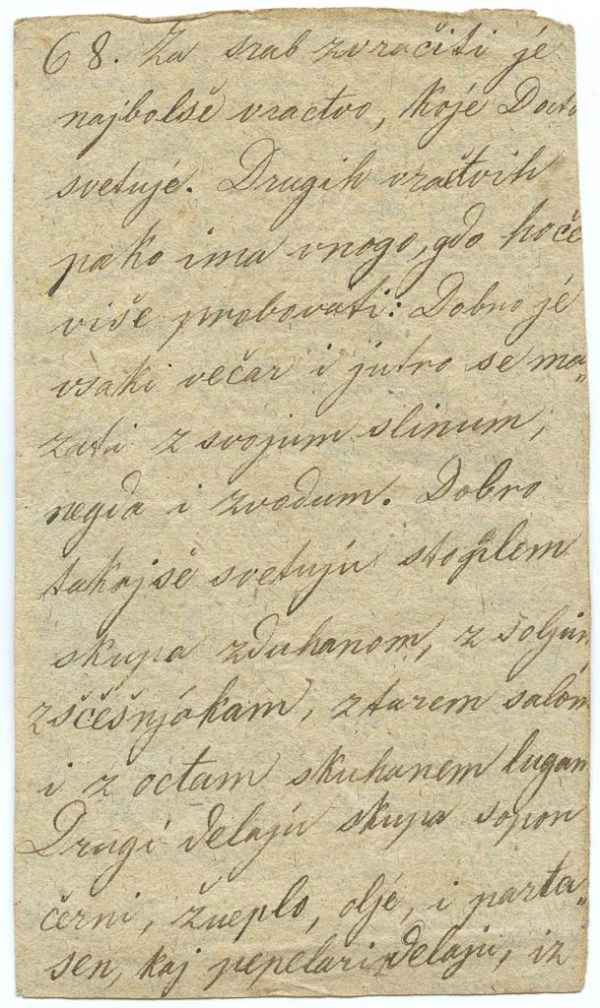 68. Za srab zvračiti je
najbolše vractvo, koje Docto
svetuje. Drugih vractvih
pako ima vnogo, gdo hoče
više probovati: Dobro je
vsaki večar i jutro se ma„
zati z svojum slinum,
negda i zvodum. Dobro
takajše svetuju stoplem
skupa zduhanom, z soljum
zščešnjakam, ztarem salom
i z octam skuhanem lugam
Drugi delaju skupa sopon
černi, žveplo, olje, i parta„
sen, kaj pepelari delaju, iz